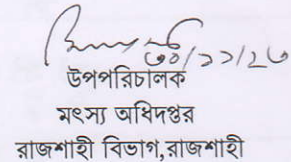 ৩০/১১/২৩
উপপরিচালক
মৎস্য অধিদপ্তর
রাজশাহী বিভাগ,রাজশাহী